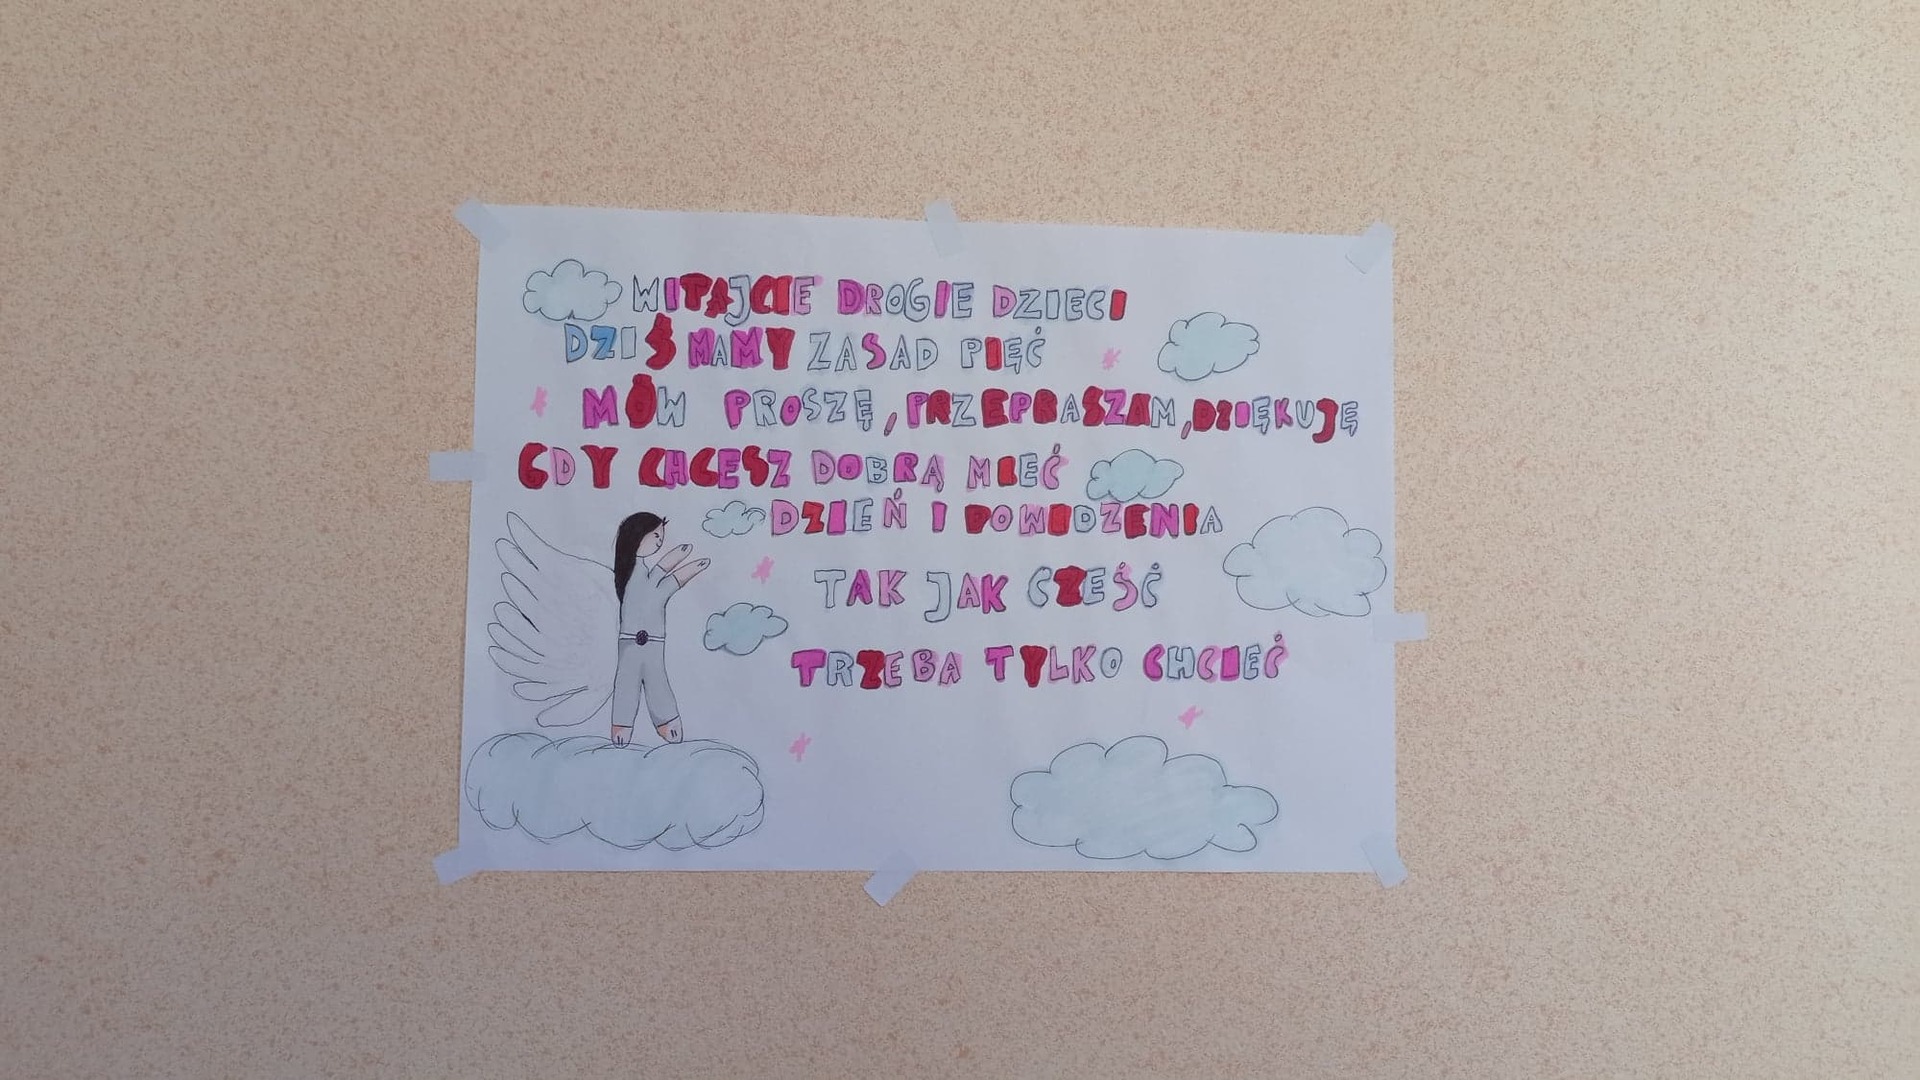 WITAJCIE DROGIE DZIECI
DZIŚ MAMY ZASAD PIĘĆ
MÓW PROSZĘ, PRZEPRASZAM, DZIĘKUJĘ
GDY CHCESZ DOBRĄ MIEĆ
DZIEŃ I POWIDZENIA
TAK JAK CZEŚĆ
TRZEBA TYLKO CHCIEĆ